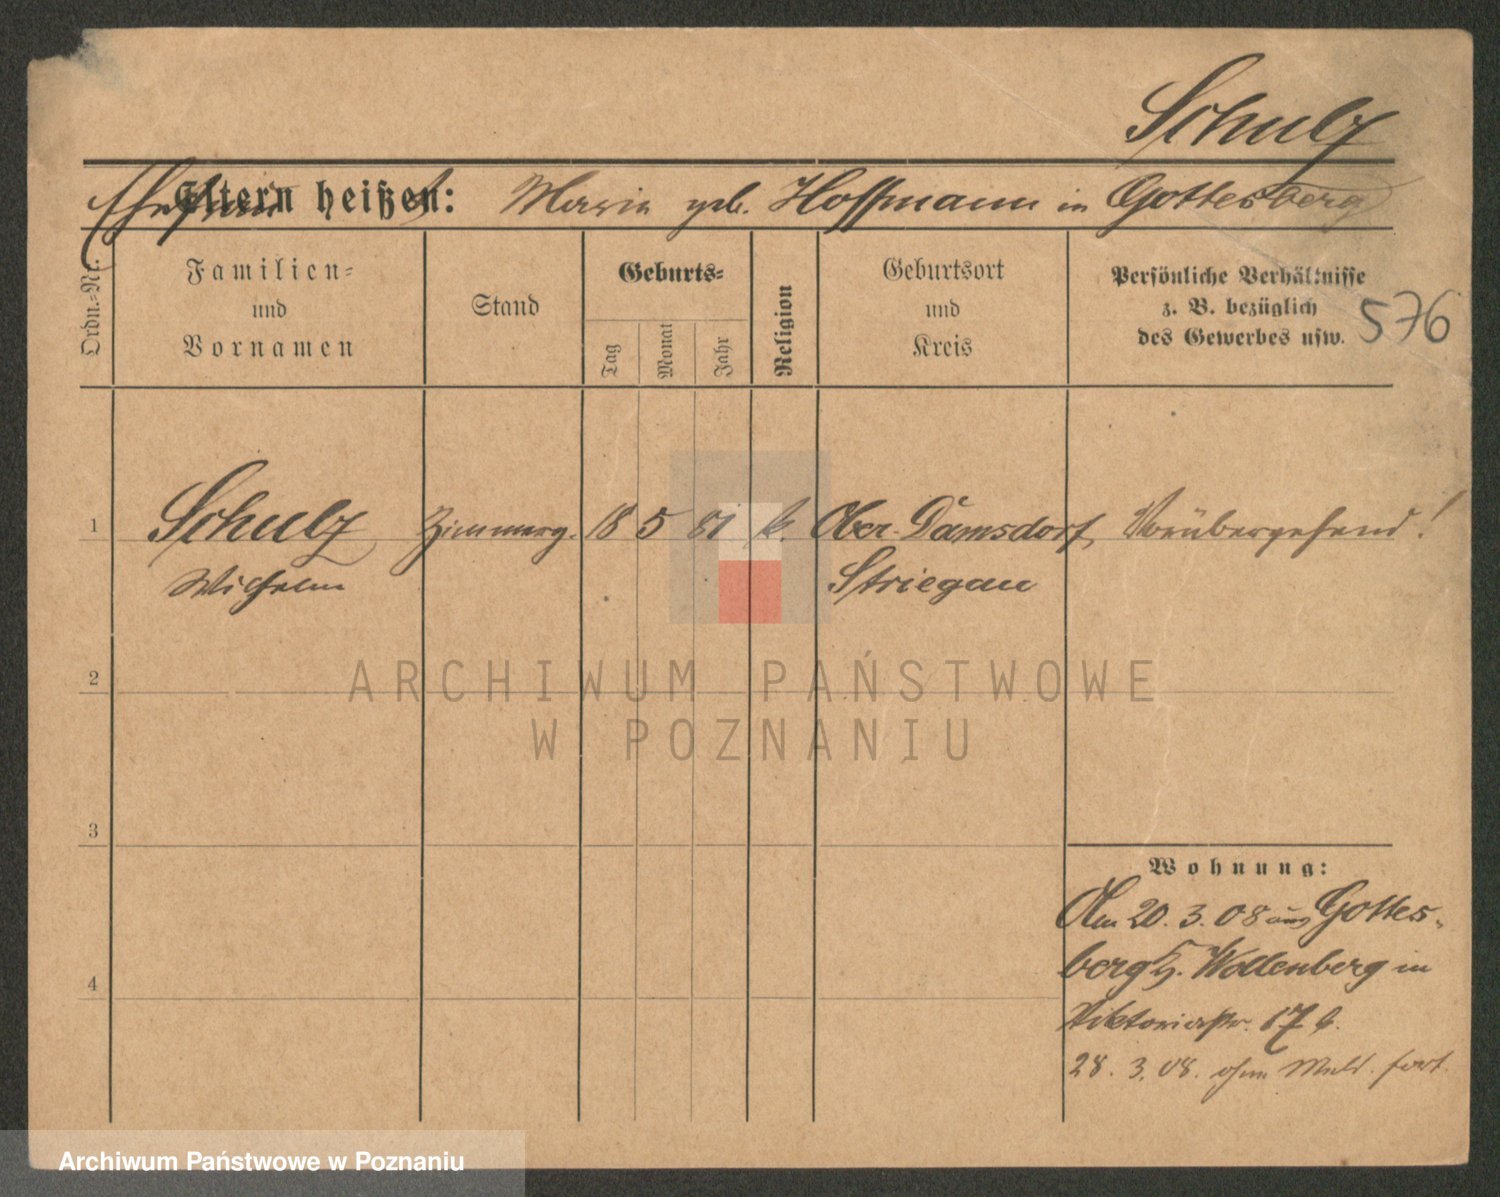 Schulz
Ehefrau Eltern heißen: Maria geb. Hoffmann in Gottesberg
Ordn.=Nr.
Familien=
und
Vornamen
Stand
Geburts=
Tag
Monat
Jahr
Religion
Geburtsort
und
Kreis
Persönliche Verhältnisse
z. B. bezüglich
des Gewerbes usw.
576
1 Schulz Zimmerg. 18 5 81 k. Ober-Damsdorf, Vorübergehend!
Wilhelm Striegau
2
3
4
Wohnung:
Am 20. 3. 08 aus Gottes-
berg Wollenberg in
Viktoriastr. 17
28. 3. 08. ohne Meld. fort.
ARCHIWUM PAŃSTWOWE
W POZNANIU
Archiwum Państwowe w Poznaniu